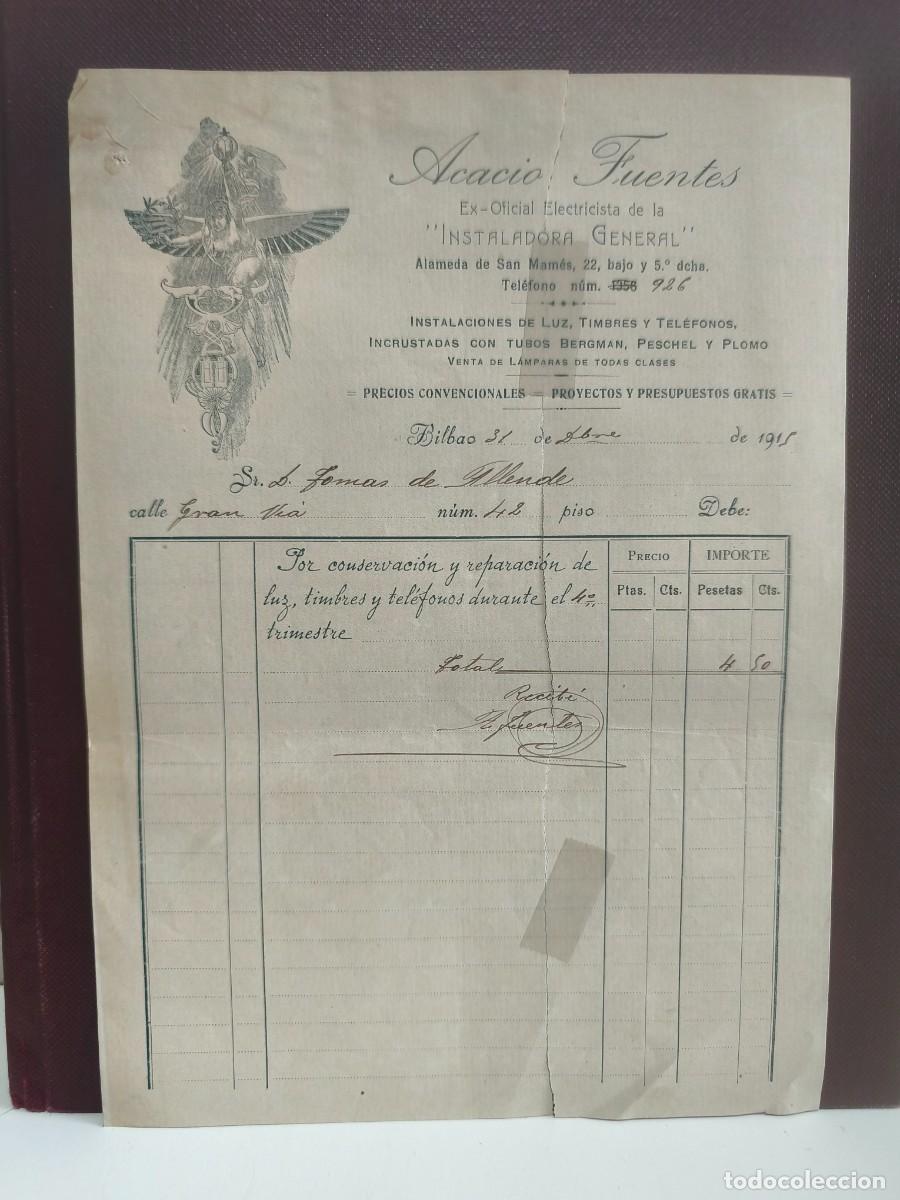 Acacio Fuentes
Ex-Oficial Electricista de la
"INSTALADORA GENERAL"
Alameda de San Mamés, 22, bajo y 5.º dcha.
Teléfono núm. 1356 926
INSTALACIONES DE LUZ, TIMBRES Y TELÉFONOS,
INCRUSTADAS CON TUBOS BERGMAN, PESCHEL Y PLOMO
VENTA DE LÁMPARAS DE TODAS CLASES
= PRECIOS CONVENCIONALES = PROYECTOS Y PRESUPUESTOS GRATIS =
Bilbao 31 de Dbre de 1915
Sr. D. Tomas de Allende
calle Gran Via núm. 42 piso Debe:
PRECIO IMPORTE
Ptas. Cts. Pesetas Cts.
Por conservación y reparación de
luz, timbres y teléfonos durante el 4º
trimestre
Total 4 50
Recibí
A. Fuentes
todocoleccion